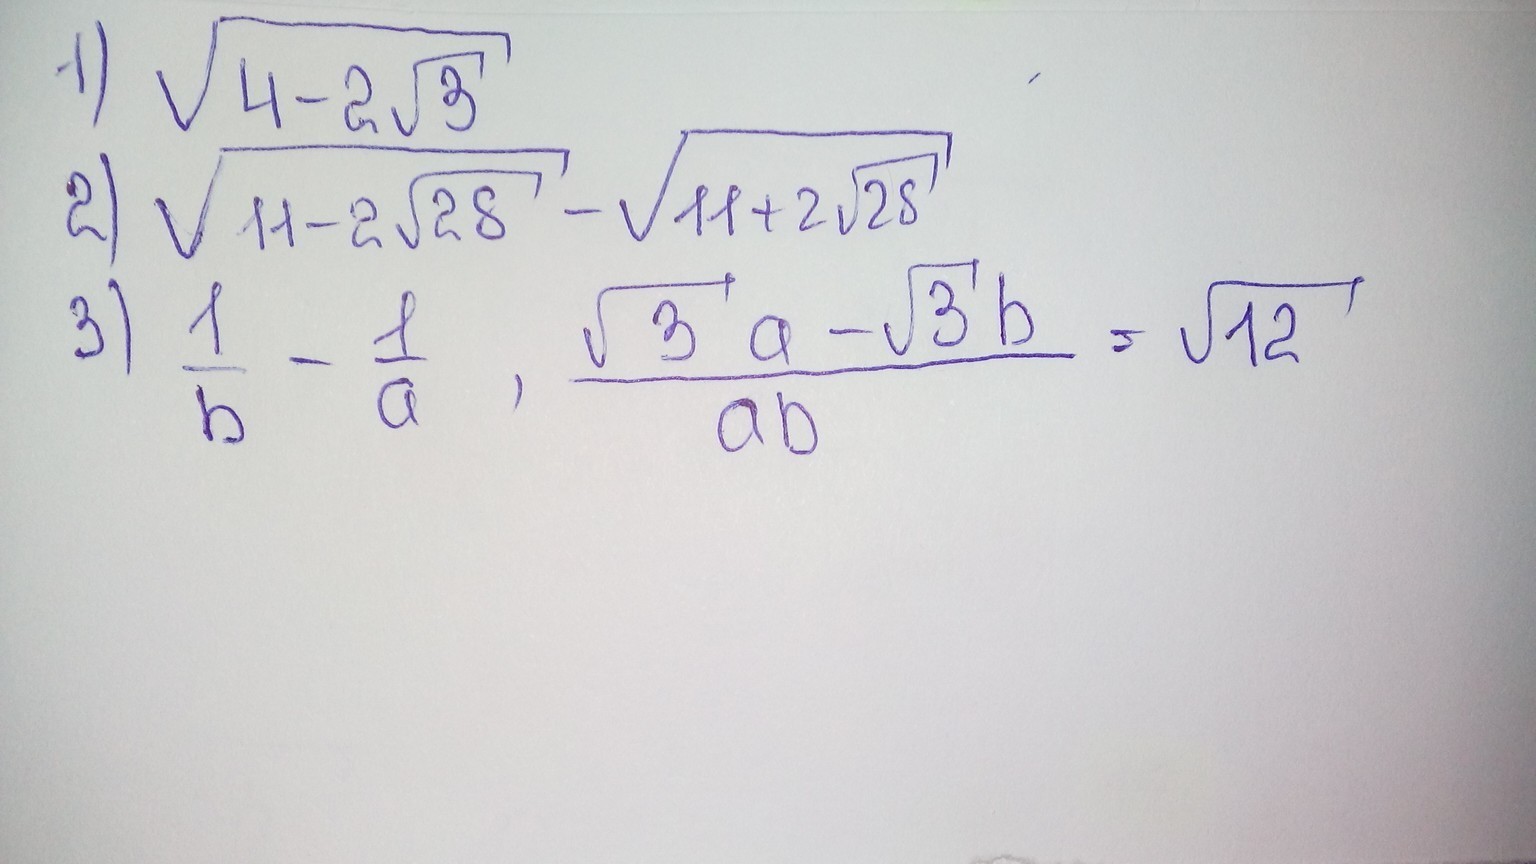 1) √(4-2√3)
2) √(11-2√28) - √(11+2√28)
3) 1/b - 1/a , (√3 a - √3 b)/ab = √12